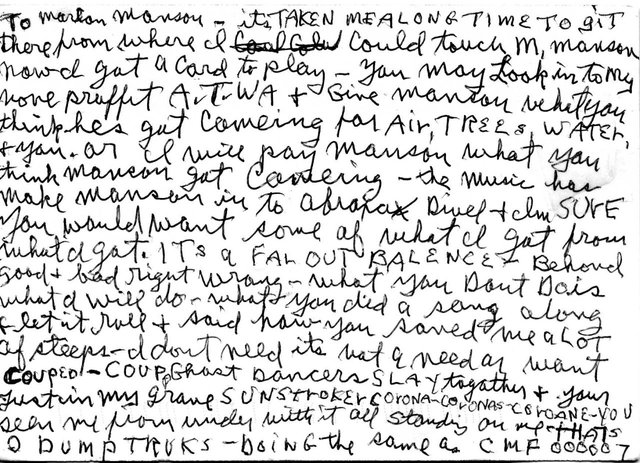 To marlon manson - it's TAKEN ME A LONG TIME TO git
there from where I Could touch M, manson
now I got a Card to play - you may Look in to My
none proffit A.T.W.A. + Give manson what you
think hes got Comeing for Air, TREES, WATER,
+ you. or I will pay Manson what you
think manson got Comeing - the music has
make Manson in to abraxas Divel + I'm SURE
you would want some of what I got from
what I got. IT's a FAR OUT BALENCE - Behond
good + bad right wrong - what you Dont Do is
what I will do - what you did a song along
+ let it roll + said how you saved me a LOT
of steeps - I dont need it's not a need or want
COUPED - COUP, Ghost DANCERS SLAY together + your
just in my grave SUNSTROKER CORONA-CORONAS-COROANE-YOU
seen me from under with it all standing on me THATS
2 DUMPTRUKS - DOING the same as CMF 000007